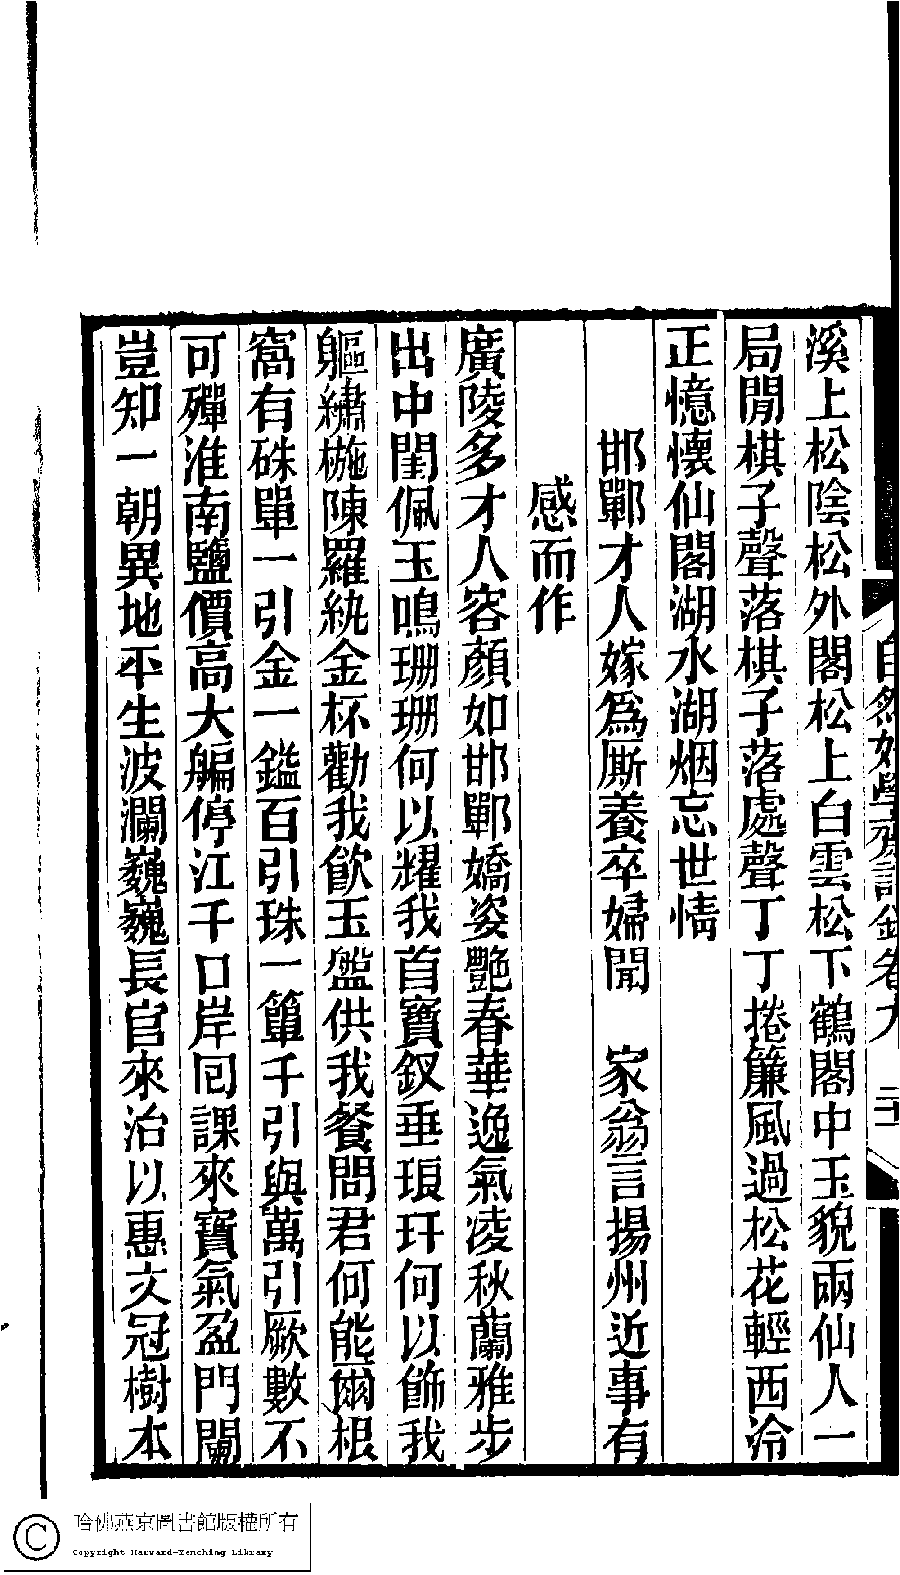 自然好學齋詩鈔卷九 二十
溪上松陰松外閣松上白雲松下鶴閣中玉貌兩仙人一
局閒棋子聲落棋子落處聲丁丁捲簾風過松花輕西泠
正憶懷仙閣湖水湖烟忘世情
邯鄲才人嫁爲厮養卒婦聞 家翁言揚州近事有
感而作
廣陵多才人容顏如邯鄲嬌姿艷春華逸氣凌秋蘭雅步
出中閨佩玉鳴珊珊何以耀我首寶釵垂琅玕何以飾我
軀繡㡓陳羅紈金杯勸我飲玉盤供我餐問君何能爾根
窩有硃單一引金一鎰百引珠一簞千引與萬引厥數不
可殫淮南鹽價高大艑停江干口岸回課來寶氣盈門闌
豈知一朝異地平生波瀾巍巍長官來治以惠文冠樹本
哈佛燕京圖書館版權所有
Copyright Harvard-Yenching Library